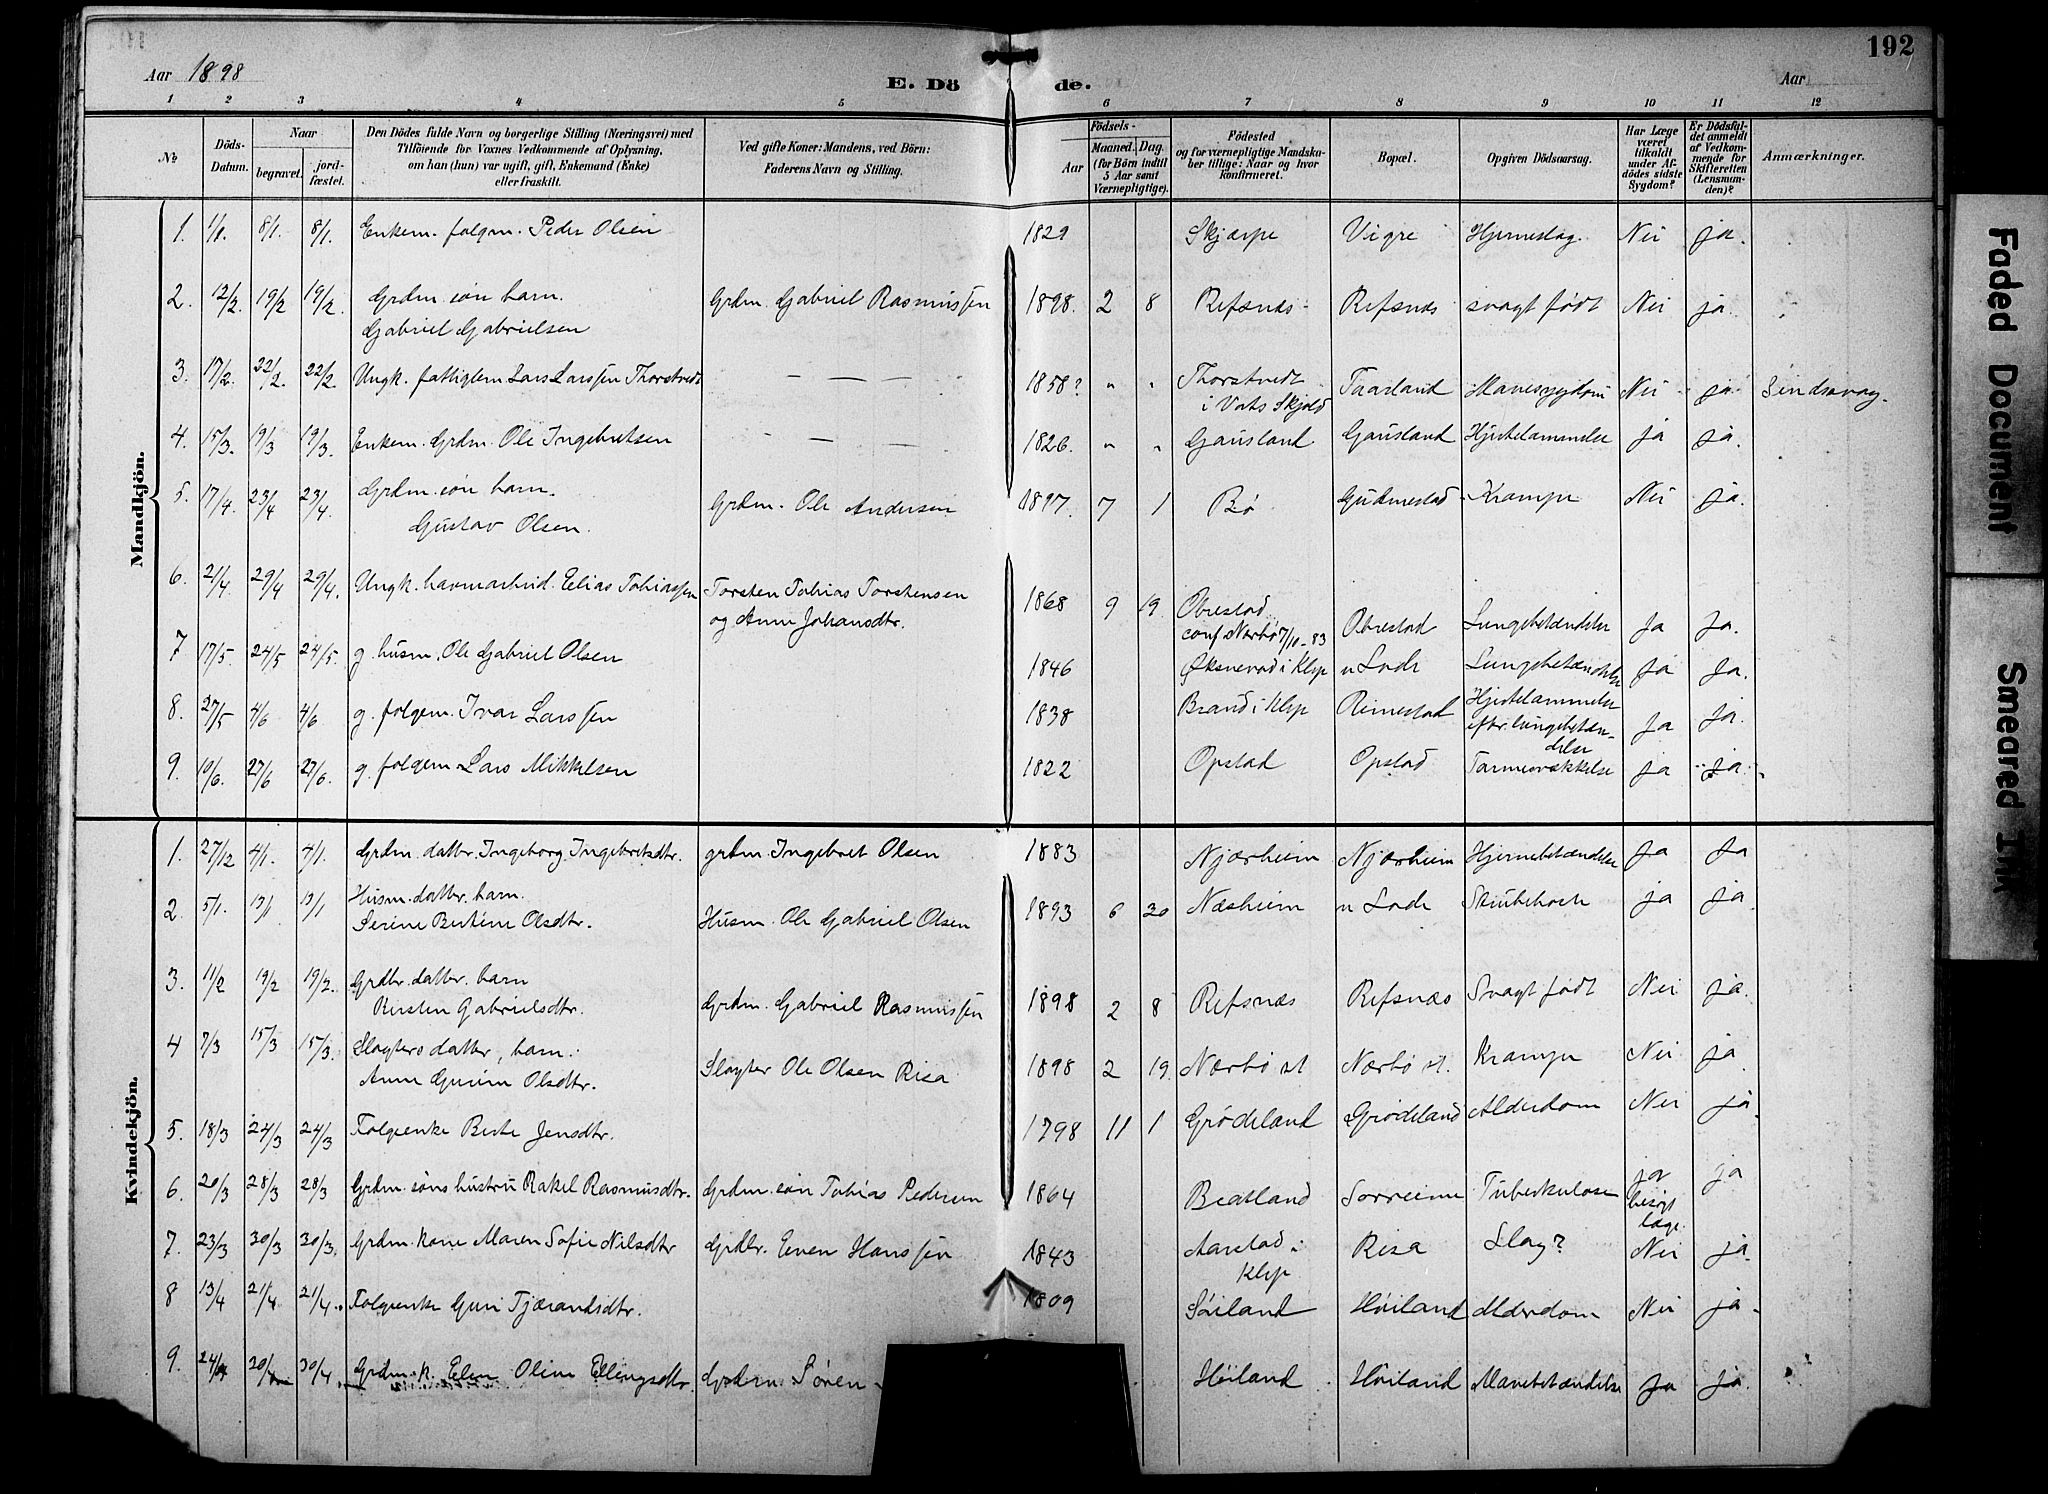 192
Aar 1898
E. Dö de.
Aar
1 2 3 4 5 6 7 8 9 10 11 12
№
Döds-Datum.
Naar
begravet.
jord-fæstet.
Den Dödes fulde Navn og borgerlige Stilling (Næringsvei) med
Tilföiende for Voxnes Vedkommende af Oplysning,
om han (hun) var ugift, gift, Enkemand (Enke)
eller fraskilt.
Ved gifte Koner: Mandens, ved Börn:
Faderens Navn og Stilling.
Födsels-
Aar
Maaned. Dag.
(for Börn indtil
5 Aar samt
Værnepligtige).
Födested
og for værnepligtige Mandska-
ber tillige: Naar og hvor
konfirmeret.
Bopæl.
Opgiven Dödsaarsag.
Har Læge
været
tilkaldt
under Af-
dödes sidste
Sygdom?
Er Dödsfal-
det anmeldt
af Vedkom-
mende for
Skifteretten
(Lensman-
den)?
Anmærkninger.
Mandkjön.
1. 1/1. 8/1. 8/1. Enkem. folgm. Peder Olsen 1829 Skjærpe Vigre Hjerneslag. Nei ja.
2. 12/2. 19/2 19/2. Grdm. søn barn. Grdm. Gabriel Rasmussen 1898. 2 8 Refsnæs Refsnæs svagt født Nei ja
Gabriel Gabrielsen
3. 17/2. 22/2. 22/2 Ungk. fattiglem Lars Larssen Thorstvedt — — — 1858? " " Thorstvedt Taarland Mavesygdom Nei ja Sindssvag.
i Vats Skjold
4. 15/3. 19/3 19/3. Enkem. Grdm. Ole Ingebretsen — — — 1826. " " Gausland Gausland Hjertelammelse ja ja.
5. 17/4. 23/4 23/4. Grdm. søn barn. Grdm. Ole Andersen 1897. 7 1 Bø Gudmestad Krampe Nei ja.
Gustav Olsen.
6. 21/4. 29/4 29/4. Ungk. havnearbeid. Elias Tobiassen Torsten Tobias Torstensen 1868 9 19. Obrestad Obrestad Lungebetændelse Ja Ja.
og Anne Johansdtr. conf. Nærbø 7/10-83
7 17/5. 24/5 24/5. g. husm. Ole Gabriel Olsen 1846 Øksnevad i Klep n Lode Lungebetændelse Ja Ja.
8. 27/5 4/6 4/6 g. folgem. Ivar Larssen 1838 Brand i Klep Reimestad Hjertelammelse Ja Ja.
efter lungebetæn-
delse
9. 19/6. 27/6 27/6. g. folgem. Lars Mikkelsen 1822 Opstad Opstad Tarmesvækkelse ja ja.
Kvindekjön.
1. 27/12 4/1. 4/1. Grdm. datter Ingeborg Ingebretsdtr. grdm. Ingebret Olsen 1883 Njærheim Njærheim Hjernebetændelse Ja Ja
2. 5/1. 13/1 13/1 Husm. datter. barn. Husm. Ole Gabriel Olsen 1893 6 20 Næsheim n Lode Strubehoste ja ja.
Serine Bertine Olsdtr.
3. 11/2 19/2 19/2. Grdbr. datter. barn Grdm. Gabriel Rasmussen 1898 2 8 Refsnæs Refsnæs Svagt født Nei ja.
Kirsten Gabrielsdtr.
4 7/3 15/3 15/3. Slagters datter, barn. Slagter Ole Olsen Risa 1898 2 19. Nærbø st Nærbø st. Krampe Nei ja
Anne Gurine Olsdtr.
5. 18/3 24/3 24/3 Folgeenke Berte Jensdtr. 1798 11 1 Grødeland Grødeland Alderdom Nei ja.
6. 20/3 28/3 28/3 Grdm. søns hustru Rakel Rasmusdtr. Grdm. søn Tobias Pedersen 1864 Bratland Sorreime Tuberkulose ja ja
besøgt
læge.
7. 23/3 30/3 30/3. Grdm. kone Maren Sofie Nilsdtr Grdbr. Even Hanssen 1843 Aarstad i Risa Slag? Nei ja.
Klep
8 13/4 21/4 21/4. Folgeenke Guri Tjærandsdtr. 1809 Søiland Høiland Alderdom Nei ja.
9. 24/4 30/4 30/4. Grdm. k. Elen Oline Ellingsdtr. Grdm. Søren Høiland Høiland Mavebetændelse Ja ja.
Faded Document
Smeared Ink